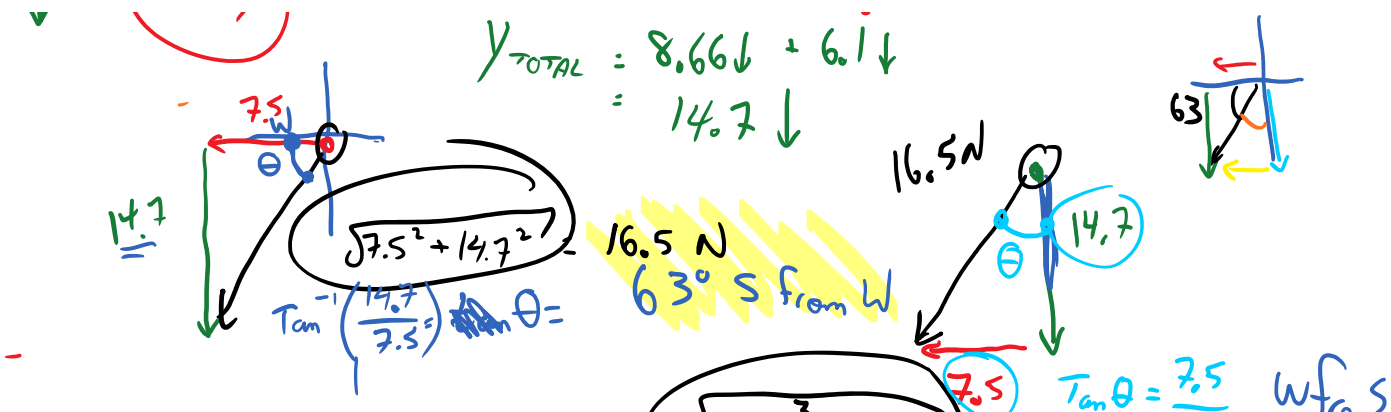 y TOTAL = 8.66↓ + 6.1↓
= 14.7 ↓
7.5
W
θ
14.7
√7.5² + 14.7² = 16.5 N
Tan⁻¹(14.7/7.5=) θ=
63° S from W
16.5N
14.7
θ
7.5
Tanθ = 7.5
63